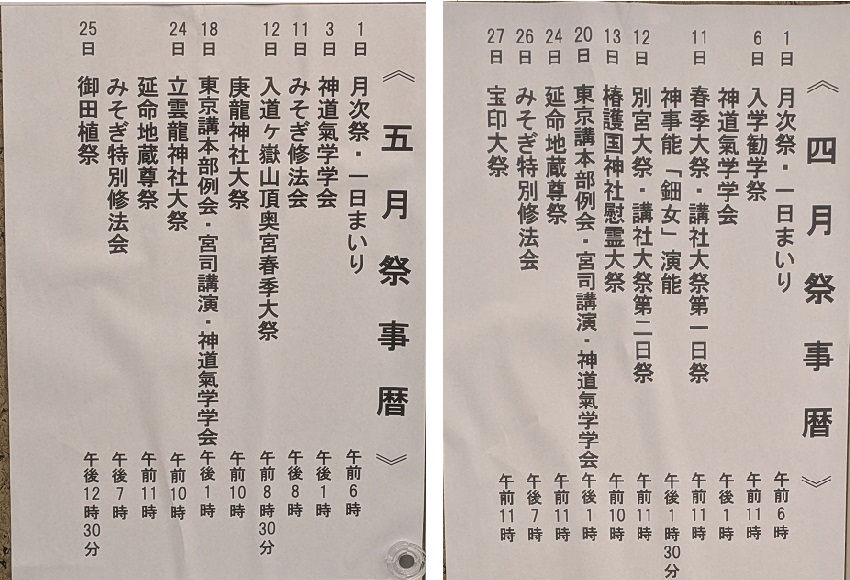 《四月祭事暦》
1日 月次祭・一日まいり 午前6時
6日 入学勧学祭 午前11時
神道氣学学会 午後1時
11日 春季大祭・講社大祭第一日祭 午前11時
神事能「鈿女」演能 午後1時30分
12日 別宮大祭・講社大祭第二日祭 午前11時
13日 椿護国神社慰霊大祭 午前10時
20日 東京講本部例会・宮司講演・神道氣学学会 午後1時
24日 延命地蔵尊祭 午前11時
26日 みそぎ特別修法会 午後7時
27日 宝印大祭 午前11時
《五月祭事暦》
1日 月次祭・一日まいり 午前6時
3日 神道氣学学会 午後1時
11日 みそぎ修法会 午後8時
12日 入道ヶ嶽山頂奥宮春季大祭 午前8時30分
庚龍神社大祭 午前10時
18日 東京講本部例会・宮司講演・神道氣学学会 午後1時
24日 立雲龍神社大祭 午前10時
延命地蔵尊祭 午前11時
みそぎ特別修法会 午後7時
25日 御田植祭 午後12時30分